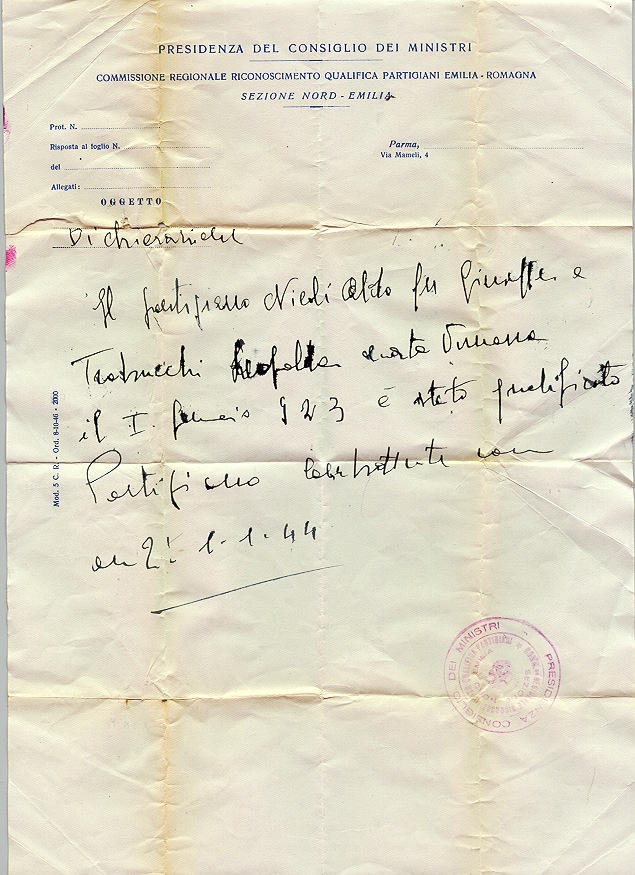 PRESIDENZA DEL CONSIGLIO DEI MINISTRI
COMMISSIONE REGIONALE RICONOSCIMENTO QUALIFICA PARTIGIANI EMILIA-ROMAGNA
SEZIONE NORD - EMILIA
Prot. N.
Risposta al foglio N.
del
Allegati:
OGGETTO
Parma,
Via Mameli, 4
Dichiarazione
Il partigiano Nicoli Aldo fu Giuseppe e
il I. gennaio 923 è stato qualificato
Partigiano combattente con
1-1-44
Mod. 5 C. R. - Ord. 8-10-46 - 2000
PRESIDENZA CONSIGLIO DEI MINISTRI